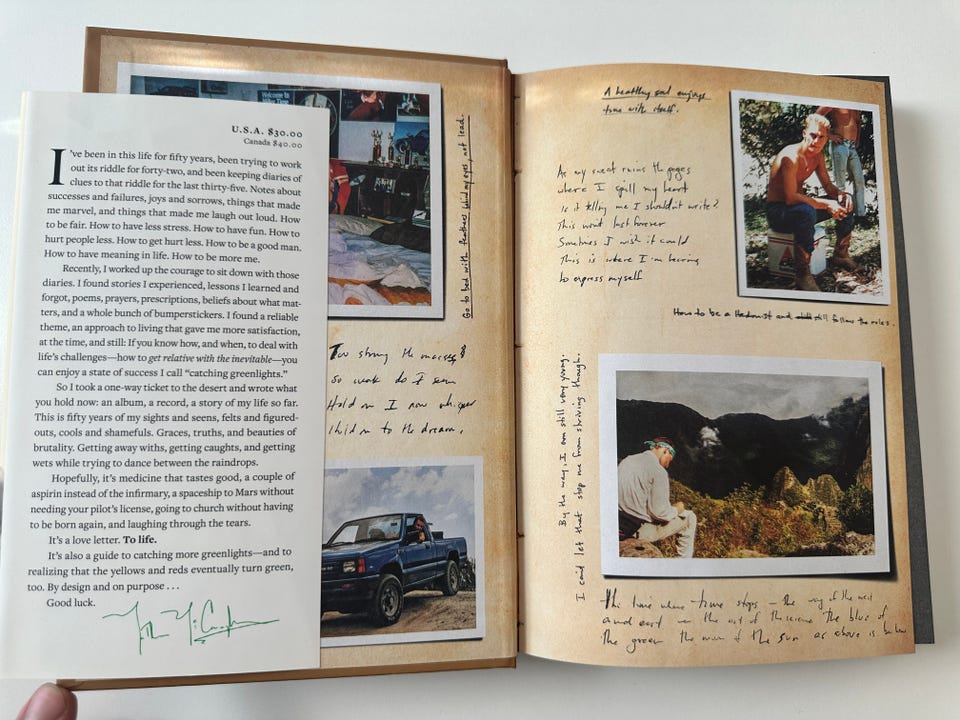 U.S.A. $30.00
Canada $40.00
I've been in this life for fifty years, been trying to work
out its riddle for forty-two, and been keeping diaries of
clues to that riddle for the last thirty-five. Notes about
successes and failures, joys and sorrows, things that made
me marvel, and things that made me laugh out loud. How
to be fair. How to have less stress. How to have fun. How to
hurt people less. How to get hurt less. How to be a good man.
How to have meaning in life. How to be more me.
Recently, I worked up the courage to sit down with those
diaries. I found stories I experienced, lessons I learned and
forgot, poems, prayers, prescriptions, beliefs about what mat-
ters, and a whole bunch of bumperstickers. I found a reliable
theme, an approach to living that gave me more satisfaction,
at the time, and still: If you know how, and when, to deal with
life's challenges—how to get relative with the inevitable—you
can enjoy a state of success I call “catching greenlights.”
So I took a one-way ticket to the desert and wrote what
you hold now: an album, a record, a story of my life so far.
This is fifty years of my sights and seens, felts and figured-
outs, cools and shamefuls. Graces, truths, and beauties of
brutality. Getting away withs, getting caughts, and getting
wets while trying to dance between the raindrops.
Hopefully, it's medicine that tastes good, a couple of
aspirin instead of the infirmary, a spaceship to Mars without
needing your pilot's license, going to church without having
to be born again, and laughing through the tears.
It's a love letter. To life.
It's also a guide to catching more greenlights—and to
realizing that the yellows and reds eventually turn green,
too. By design and on purpose . . .
Good luck.
Welcome to
Miller Time
Go to bed with feathers behind my eyes, not lead.
Too strong the masses
so weak do I seem
Hold on I now whisper
Hold on to the dream.
A healthy soul enjoys
time with itself.
As my sweat ruins the pages
where I spill my heart
Is it telling me I shouldn't write?
This wont last forever
Sometimes I wish it could
This is where I'm learning
to express myself
How to be a Hedonist and still follow the rules.
By the way, I am still very young.
I can't let that stop me from striving though.
This time where time stops — the way of the west
and east
the blue of
the green the moon of the sun as above is below